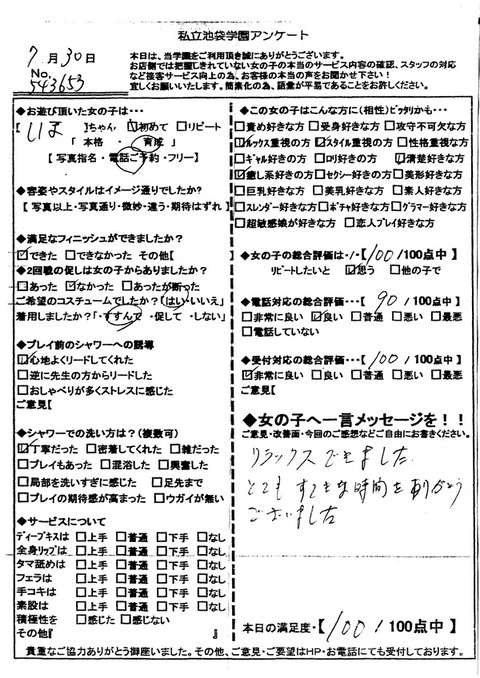 私立池袋学園アンケート
7月30日
No.
543653
本日は、当学園をご利用頂き誠にありがとうございます。
お店側では把握しきれていない女の子の本当のサービス内容の確認、スタッフの対応
など接客サービス向上の為、お客様の本当の声をお聞かせ下さい!
宜しくお願いいたします。簡素化の為、語彙が平易であることをお許しください。
◆お遊び頂いた女の子は・・・
【 】ちゃん ☑初めて □リピート
「 本格 ・ 育成 」
【 写真指名・電話ご予約・フリー】
◆容姿やスタイルはイメージ通りでしたか?
【 写真以上・写真通り・微妙・違う・期待はずれ 】
◆満足なフィニッシュができましたか?
☑できた □できなかった その他[ ]
◆2回戦の促しは女の子からありましたか?
□あった ☑なかった □あったが断った
ご希望のコスチュームでしたか?(はい・いいえ)
着用しましたか?「・すすんで ・促して ・しない」
◆プレイ前のシャワーへの誘導
☑心地よくリードしてくれた
□逆に先生の方からリードした
□おしゃべりが多くストレスに感じた
ご意見[
◆シャワーでの洗い方は?(複数可)
☑丁寧だった □密着してくれた □雑だった
□プレイもあった □混浴した □興奮した
□局部を洗いすぎに感じた □足先まで
□プレイの期待感が高まった □ウガイが無い
◆サービスについて
ディープキスは □上手 □普通 □下手 □なし
全身リップは □上手 □普通 □下手 □なし
タマ舐めは □上手 □普通 □下手 □なし
フェラは □上手 □普通 □下手 □なし
手コキは □上手 □普通 □下手 □なし
素股は □上手 □普通 □下手 □なし
積極性を □感じた □感じない
その他『 』
◆この女の子はこんな方に(相性)ピッタリかも・・・
□責め好きな方 □受身好きな方 □攻守不可欠な方
☑ルックス重視の方 ☑スタイル重視の方 □性格重視な方
□ギャル好きの方 □ロリ好きの方 ☑清楚好きな方
☑癒し系好きの方 □セクシー好きの方 □美形好きな方
□巨乳好きな方 □美乳好きな方 □素人好きな方
□スレンダー好きな方 □ポチャ好きな方 □グラマー好きな方
□超敏感娘が好きな方 □恋人プレイ好きな方
◆女の子の総合評価は・・・【100/100点中】
リピートしたいと ☑思う □他の子で
◆電話対応の総合評価・・・【 90 /100点中】
□非常に良い ☑良い □普通 □悪い □最悪
□電話していない
◆受付対応の総合評価・・・【100/100点中】
☑非常に良い □良い □普通 □悪い □最悪
ご意見[
◆女の子へ一言メッセージを!!
ご意見・改善面・今回のご感想などご自由にお書きください。
リラックスできました。
とても すてきな時間をありがとう
ございました
本日の満足度・【 100 / 100点中】
貴重なご協力ありがとう御座いました。その他、ご意見・ご要望はHP・お電話にても受付しております。